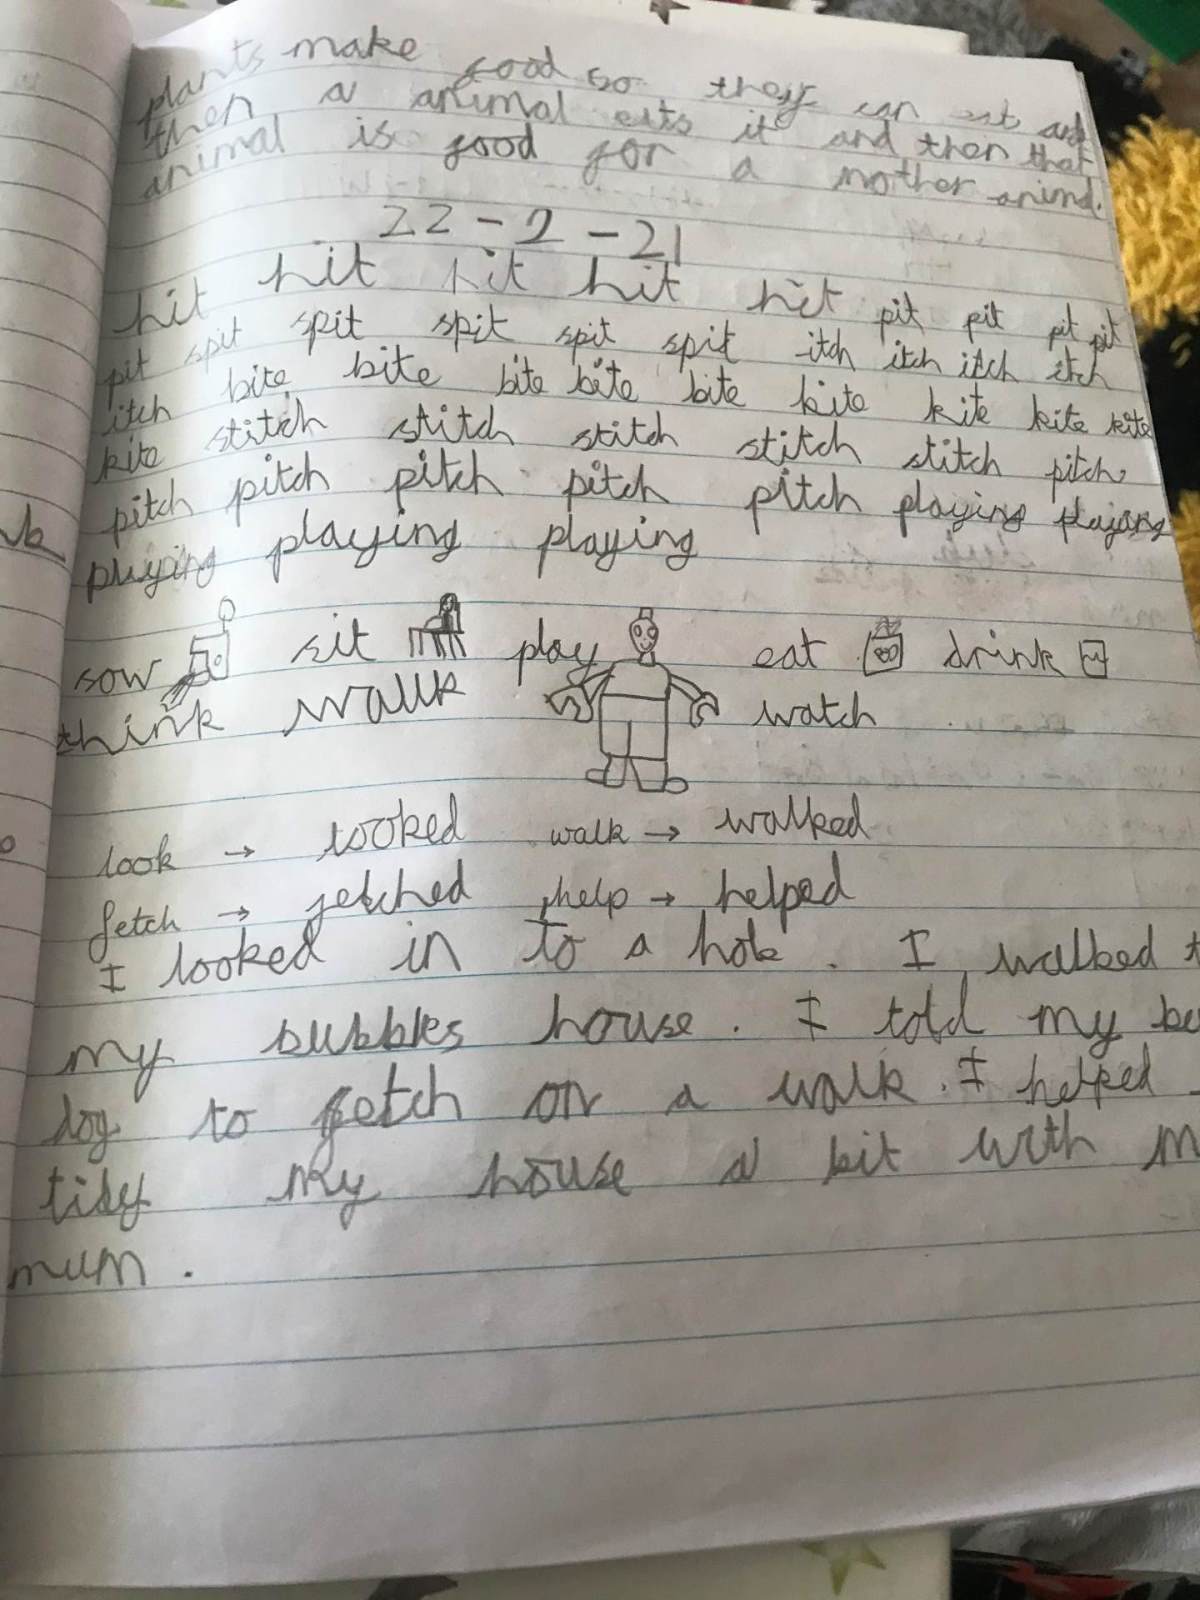 plants make food so they can eat and
then a animal eats it and then that
animal is food for a nother animal.
22-2-21
hit hit hit hit hit pit pit pit pit
pit spit spit spit spit spit itch itch itch itch
itch bite bite bite bite bite kite kite kite kite
kite stitch stitch stitch stitch stitch pitch
pitch pitch pitch pitch pitch playing playing
playing playing playing
sow sit play eat drink
think walk watch
look → looked walk → walked
fetch → fetched help → helped
I looked in to a hole. I walked
my bubbles house. I told my
dog to fetch on a walk. I helped
tidy my house a bit with
mum.